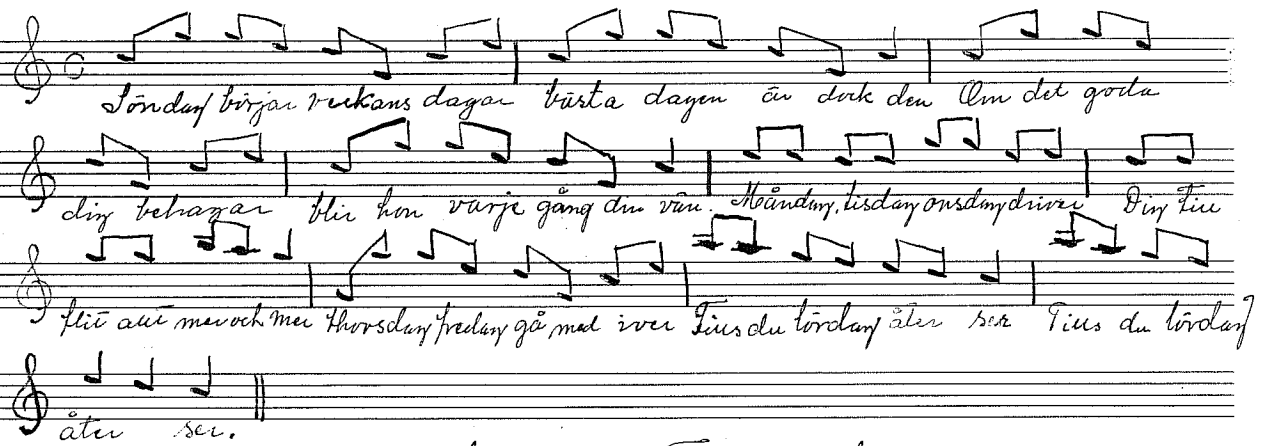 Söndag börjar veckans dagar bästa dagen är dock den Om det goda
dig behagar blir hon varje gång din vän. Måndag, tisdag onsdag driver Dig till
flit allt mer och mer Thorsdag fredag gå med iver Tills du lördag åter ser Tills du lördag
åter ser.